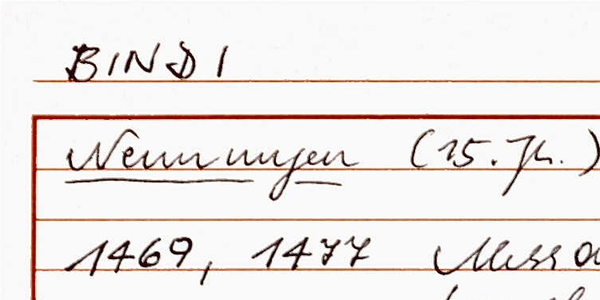 BINDI
Nennungen (15. Jh.)
1469, 1477